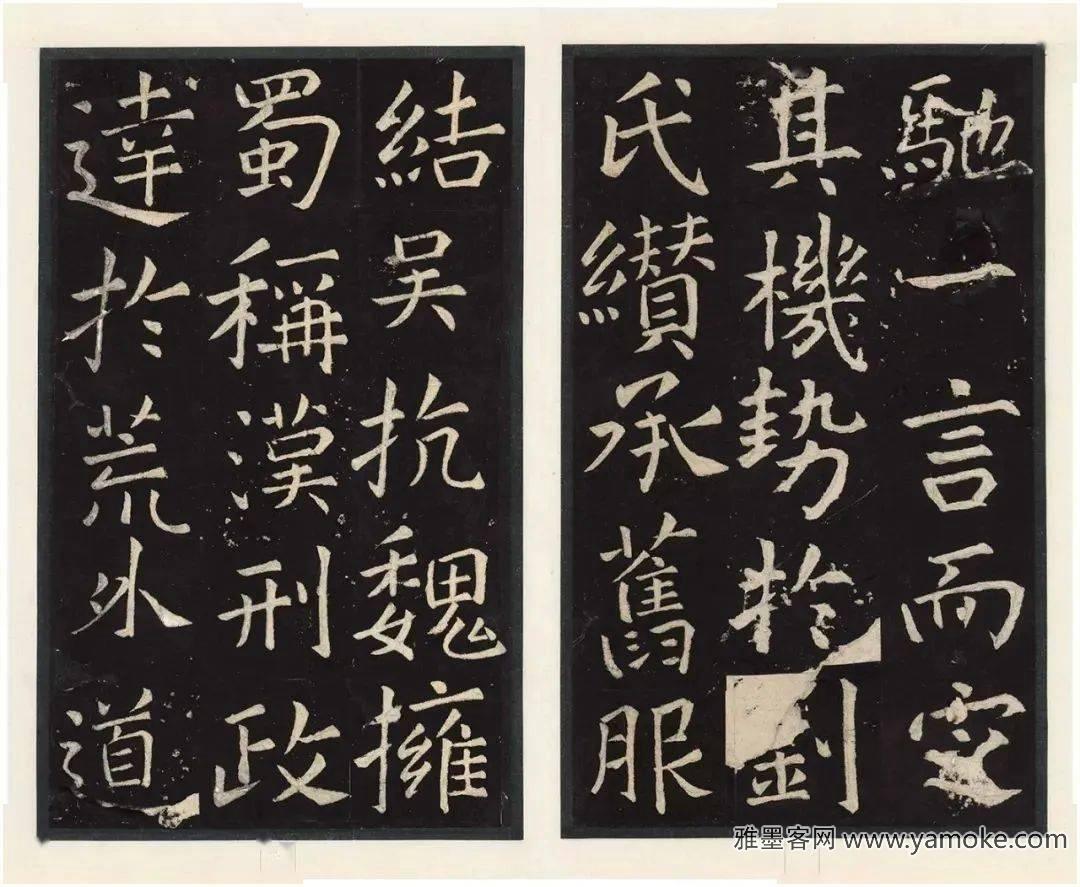 馳一言而定
其機勢於劉
氏纘承舊服
結吳抗魏擁
蜀稱漢刑政
達於荒外道
雅墨客网 www.yamoke.com